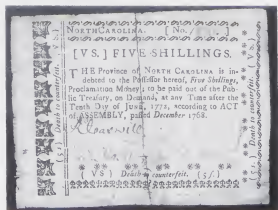 NORTH CAROLINA. No.
[VS.] FIVE SHILLINGS.
THE Province of NORTH CAROLINA is in-
debted to the Possessor hereof, Five Shillings,
Proclamation Money; to be paid out of the Pub-
lic Treasury, on Demand, at any Time after the
Tenth Day of June, 1772, according to ACT
of ASSEMBLY, passed December 1768.
(VS) Death to counterfeit. (5/.)
(5/.) Death to counterfeit. (VS)
(VS) Death to counterfeit. (5/.)